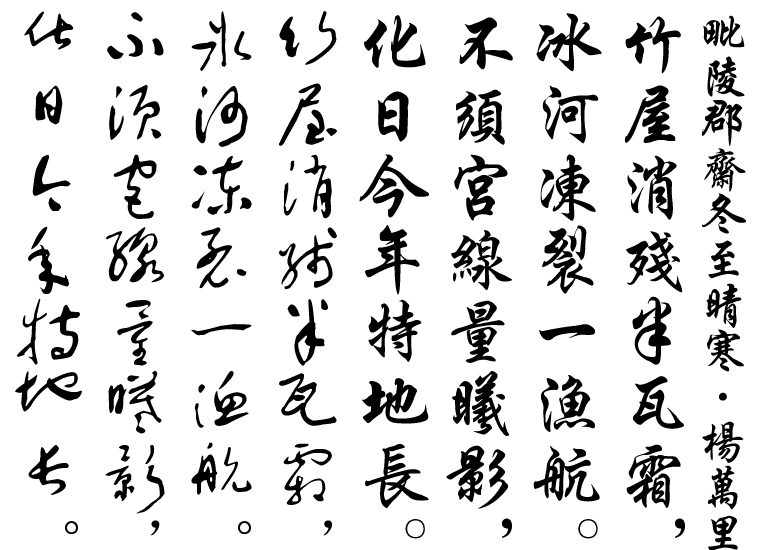 毗陵郡齋冬至晴寒・楊萬里
竹屋消殘半瓦霜，
冰河凍裂一漁航。
不須宮線量曦影，
化日今年特地長。
竹屋消殘半瓦霜，
冰河凍裂一漁航。
不須宮線量曦影，
化日今年特地長。